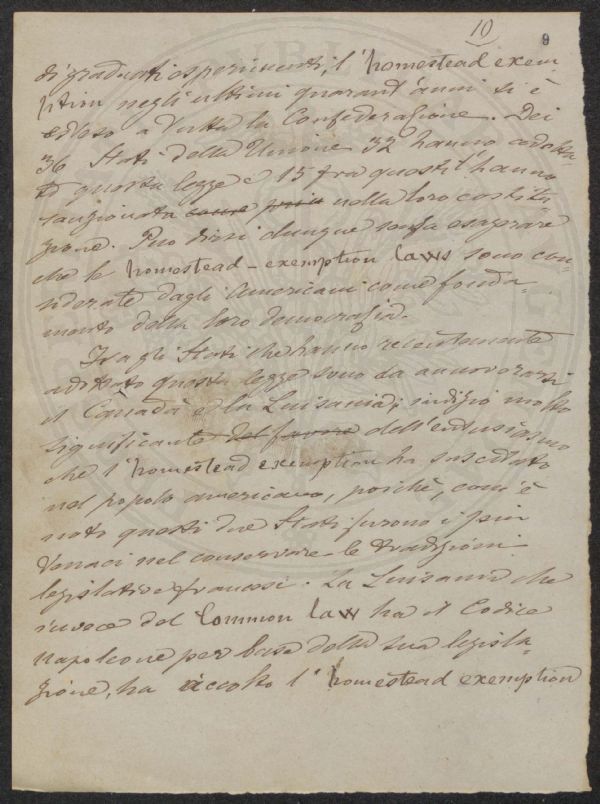 10
9
di graduati esperimenti, l'homestead exem
ption negli ultimi quarant'anni si è
esteso a tutta la Confederazione. Dei
36 Stati della Unione 32 hanno adotta-
to questa legge e 15 fra questi l'hanno
sanzionata come nella loro costitu-
zione. Può dirsi dunque senza esagerare
che le homestead-exemption laws sono con-
siderate dagli Americani come fonda-
mento della loro democrazia.
Fra gli Stati che hanno recentemente
adottato questa legge sono da annoverarsi
il Canadà e la Luisiania; indizio molto
significante del favore dell'entusiasmo
che l'homestead exemption ha suscitato
nel popolo americano, poichè, com'è
noto questi due Stati furono i più
tenaci nel conservare le tradizioni
legislative francesi. La Luisiania che
invece del Common law ha il Codice
Napoleone per base della sua legisla-
zione, ha accolto l'homestead exemption